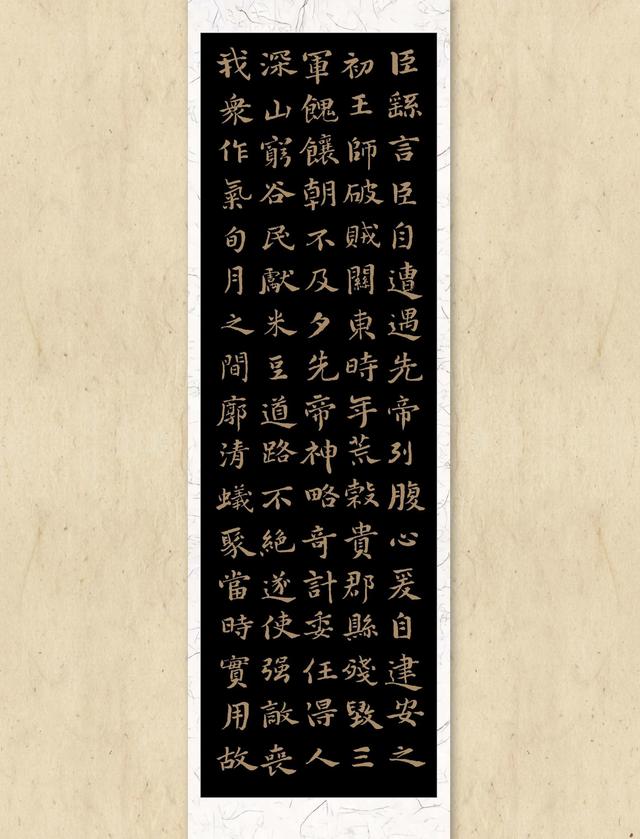 臣繇言臣自遭遇先帝列腹心爰自建安之
初王師破賊關東時年荒穀貴郡縣殘毀三
軍餽饟朝不及夕先帝神略奇計委任得人
深山窮谷民獻米豆道路不絕遂使强敵喪
我衆作氣旬月之間廓清蟻聚當時實用故